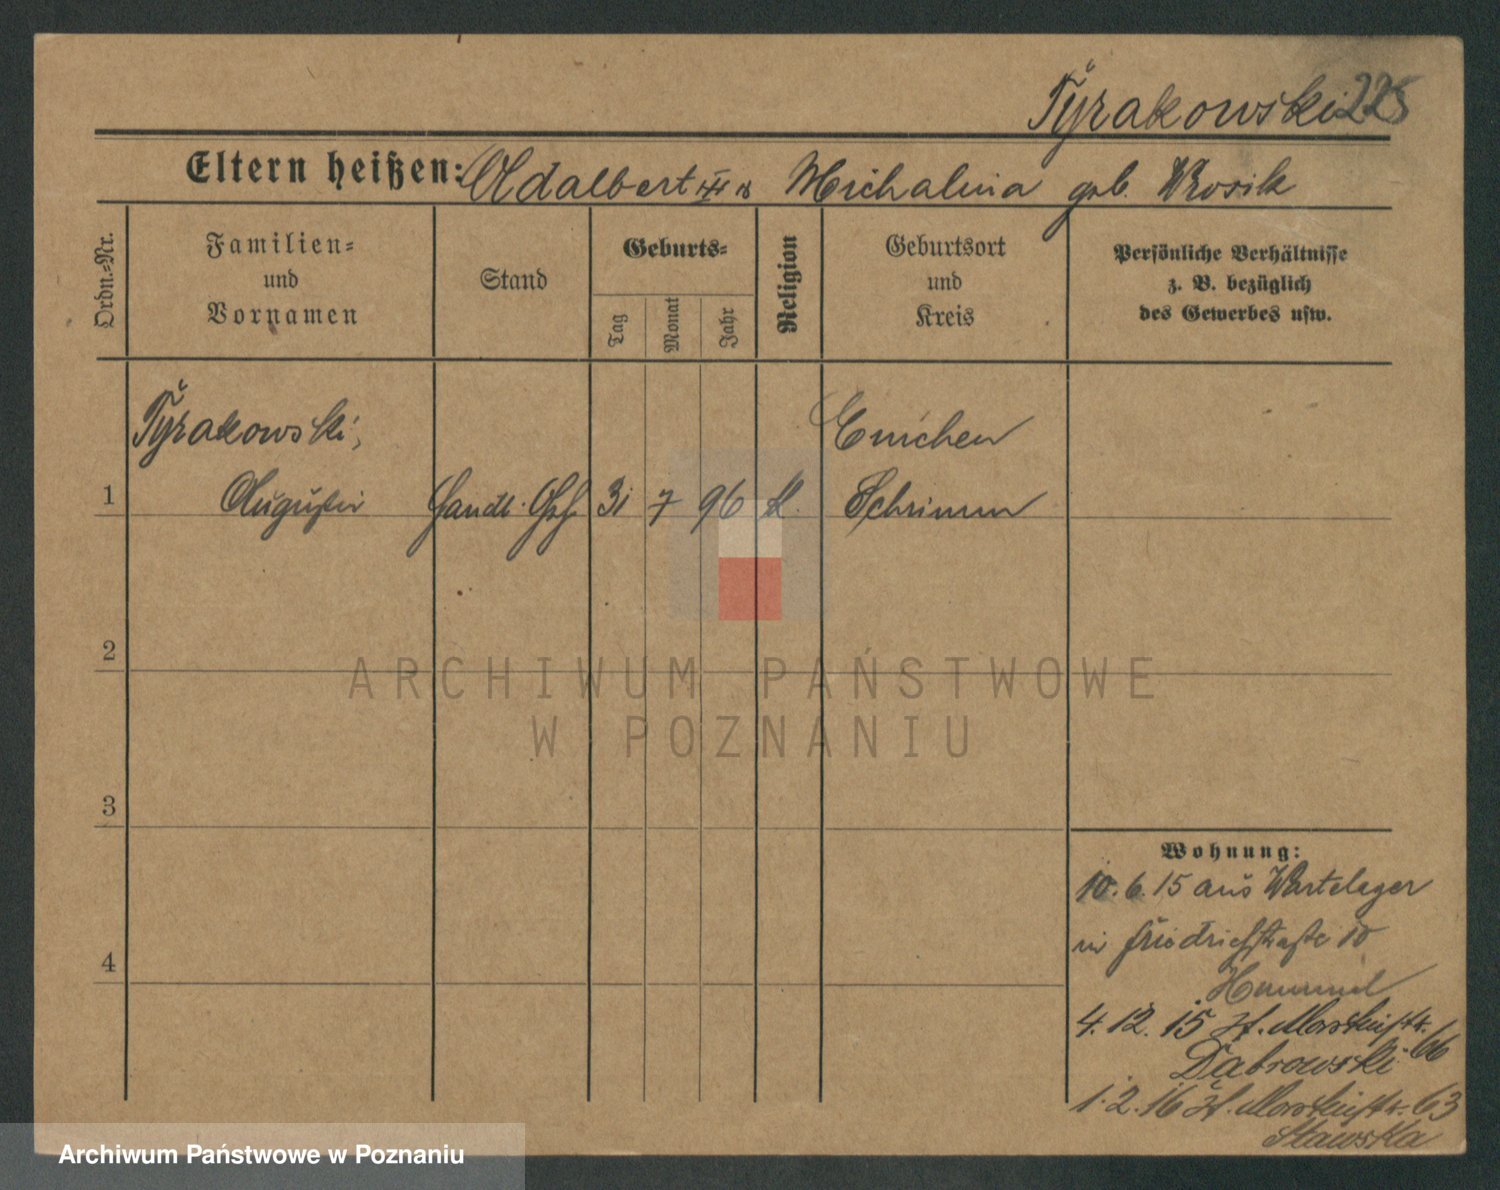 Tyrakowski 225
Eltern heißen: Adalbert u Michalina geb. Wrosik
Ordn.=Nr.
Familien=
und
Vornamen
Stand
Geburts=
Tag
Monat
Jahr
Religion
Geburtsort
und
Kreis
Persönliche Verhältnisse
z. B. bezüglich
des Gewerbes usw.
Tyrakowski,
Emchen
1 Augustin Handl. Ghf 31 7 96 k. Schrimm
2
3
4
Wohnung:
10.6.15 aus Wartelager
in Friedrichstraße 10
Hummel
4.12.15 Kl. 66
Dabrowski
1.2.16 63
Stawska
ARCHIWUM PAŃSTWOWE
W POZNANIU
Archiwum Państwowe w Poznaniu